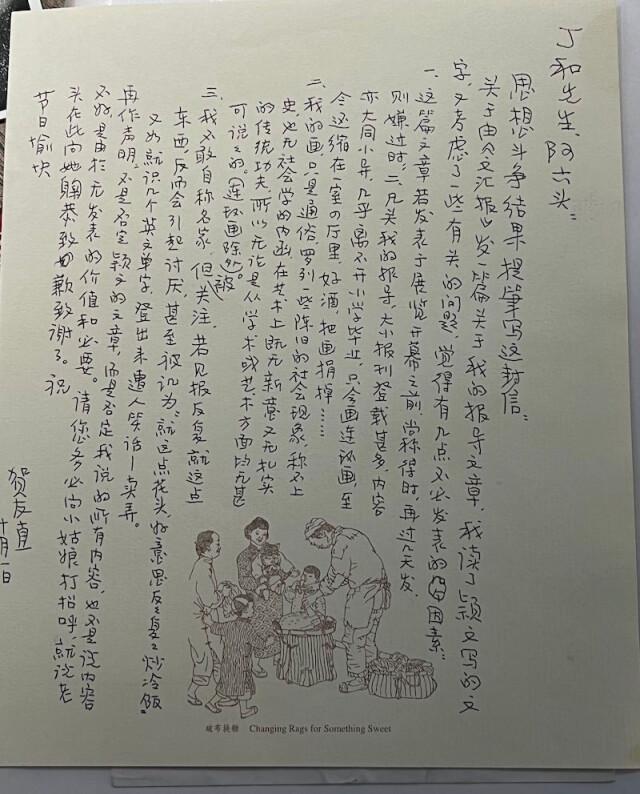 丁和先生、阿六头：
思想斗争结果提笔写这封信：
关于由《文汇报》发一篇关于我的报导文章，我读了颖文写的文
字，又考虑了一些有关的问题，觉得有几点不必发表的因素：
一、这篇文章若发表于展览开幕之前，尚称得时，再过几天发，
则嫌过时；二、凡关我的报导，大小报刊登载甚多，内容
亦大同小异，几乎离不开小学毕业，只会画连环画，至
今还缩在一室の厅里，好酒，把画捐掉……
二、我的画，只是通俗，罗列一些陈旧的社会现象，称不上
史，也无社会学的内涵，在艺术上既无新意又无扎实
的传统功夫，所以无论是从学术或艺术方面均无甚
可说之の。（连环画除外）
三、我不敢自称名家，但被关注，若见报反复就这点
东西，反而会引起讨厌，甚至被讥为：“就这点花头，好意思反反复复炒冷饭”
又如就识几个英文单字，登出来遭人笑话—卖弄。
再作声明，不是否定颖文的文章，而是否定我说的所有内容，也不是说内容
不好，是由於无发表的价值和必要。请您务必向小姑娘打招呼，就说老
头在此向她鞠恭致歉致谢了。祝
节日愉快
贺友直
十月一日
破布换糖 Changing Rags for Something Sweet